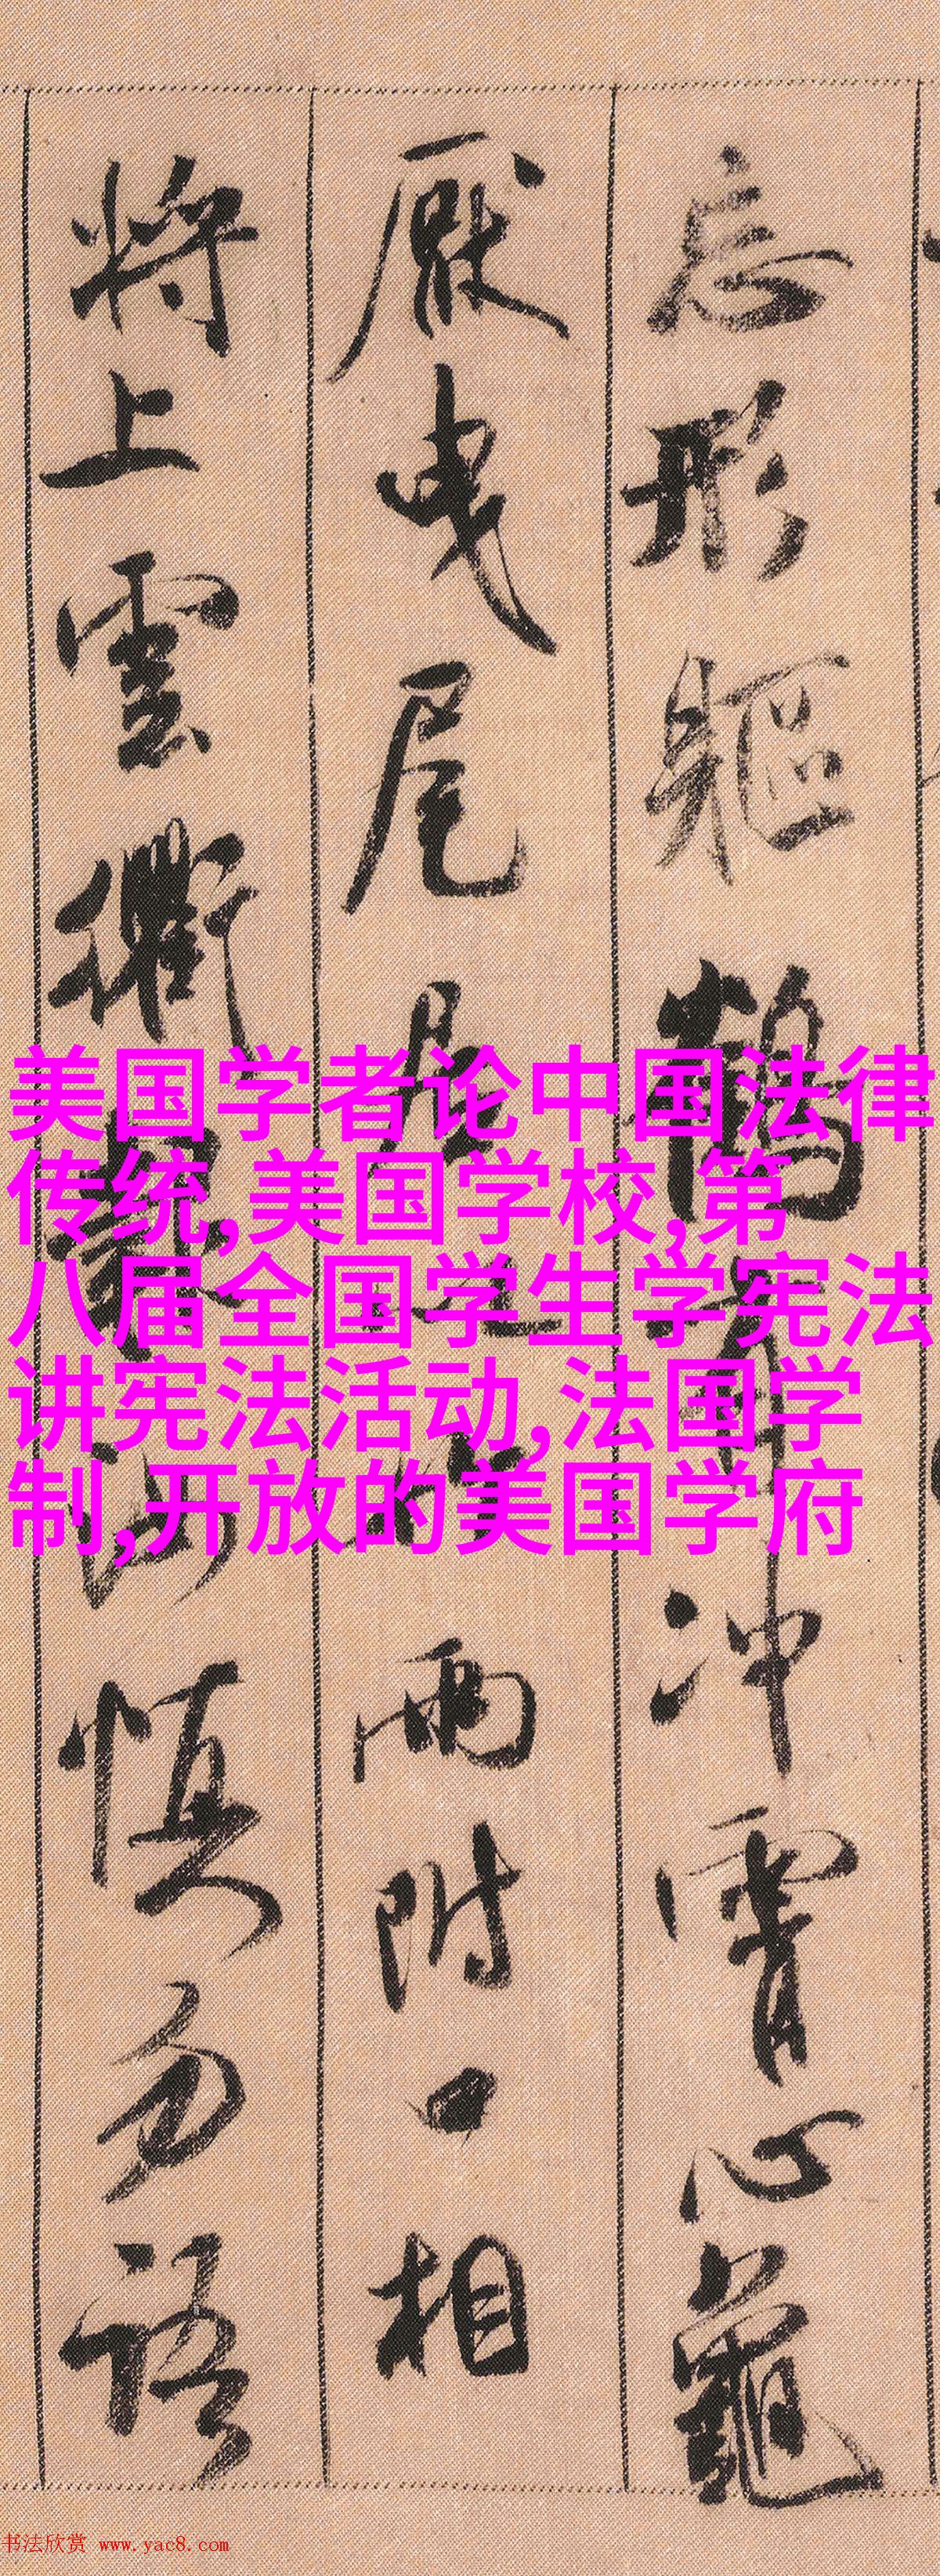 忘形軀鶴有冲霄心龜
厭曳尾居以竹兩附口相
將上雲衢報汝慎勿語
美国学者论中国法律
传统,美国学校,第
八届全国学生学宪法
讲宪法活动,法国学
制,开放的美国学府
书法欣赏 www.yac8.com